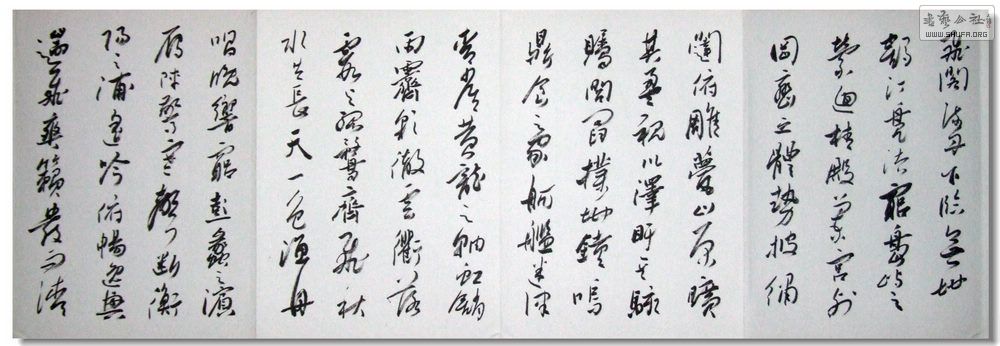 書藝公社
WWW.SHUFA.ORG
飛閣流丹下臨無地
鶴汀鳧渚窮島嶼之
縈迴桂殿蘭宮列
岡巒之體勢披繡
闥俯雕甍山原曠
其盈視川澤盱其駭
矚閭閻撲地鐘鳴
鼎食之家舸艦迷津
青雀黃龍之舳虹銷
雨霽彩徹雲衢落
霞與孤鶩齊飛秋
水共長天一色漁舟
唱晚響窮彭蠡之濱
雁陣驚寒聲斷衡
陽之浦遙吟俯暢逸興
遄飛爽籟發而清